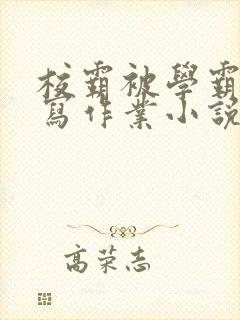 校霸被學霸
寫作業小説
高荣志